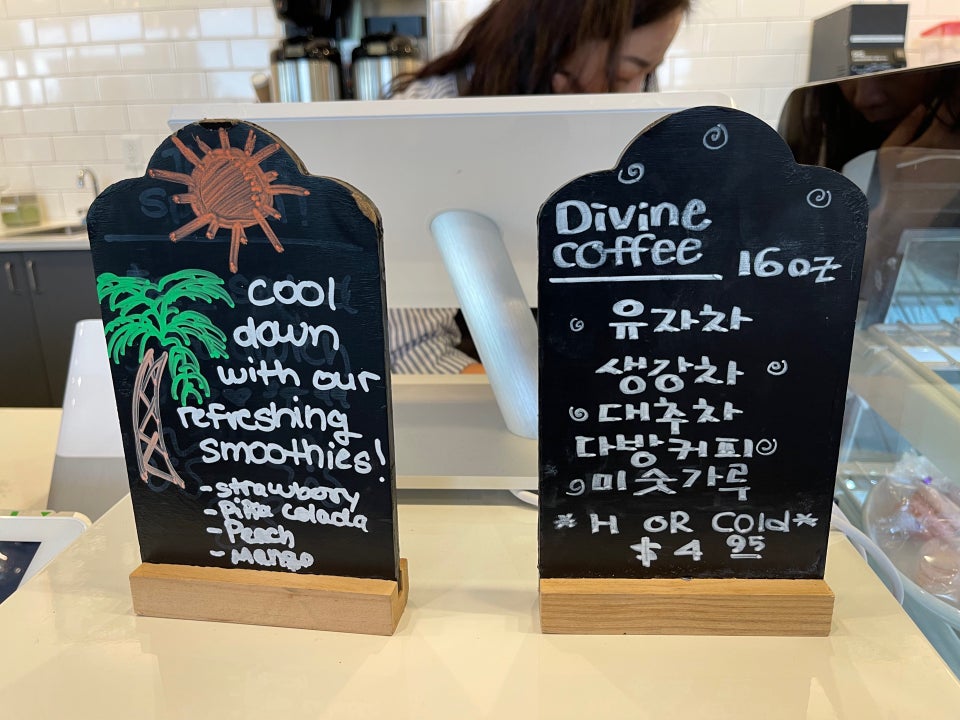 cool
down
with our
refreshing
smoothies!
-strawberry
-Piña colada
-Peach
-Mango
Divine
coffee
16oz
유자차
생강차
대추차
다방커피
미숫가루
*H OR Cold*
$4 95